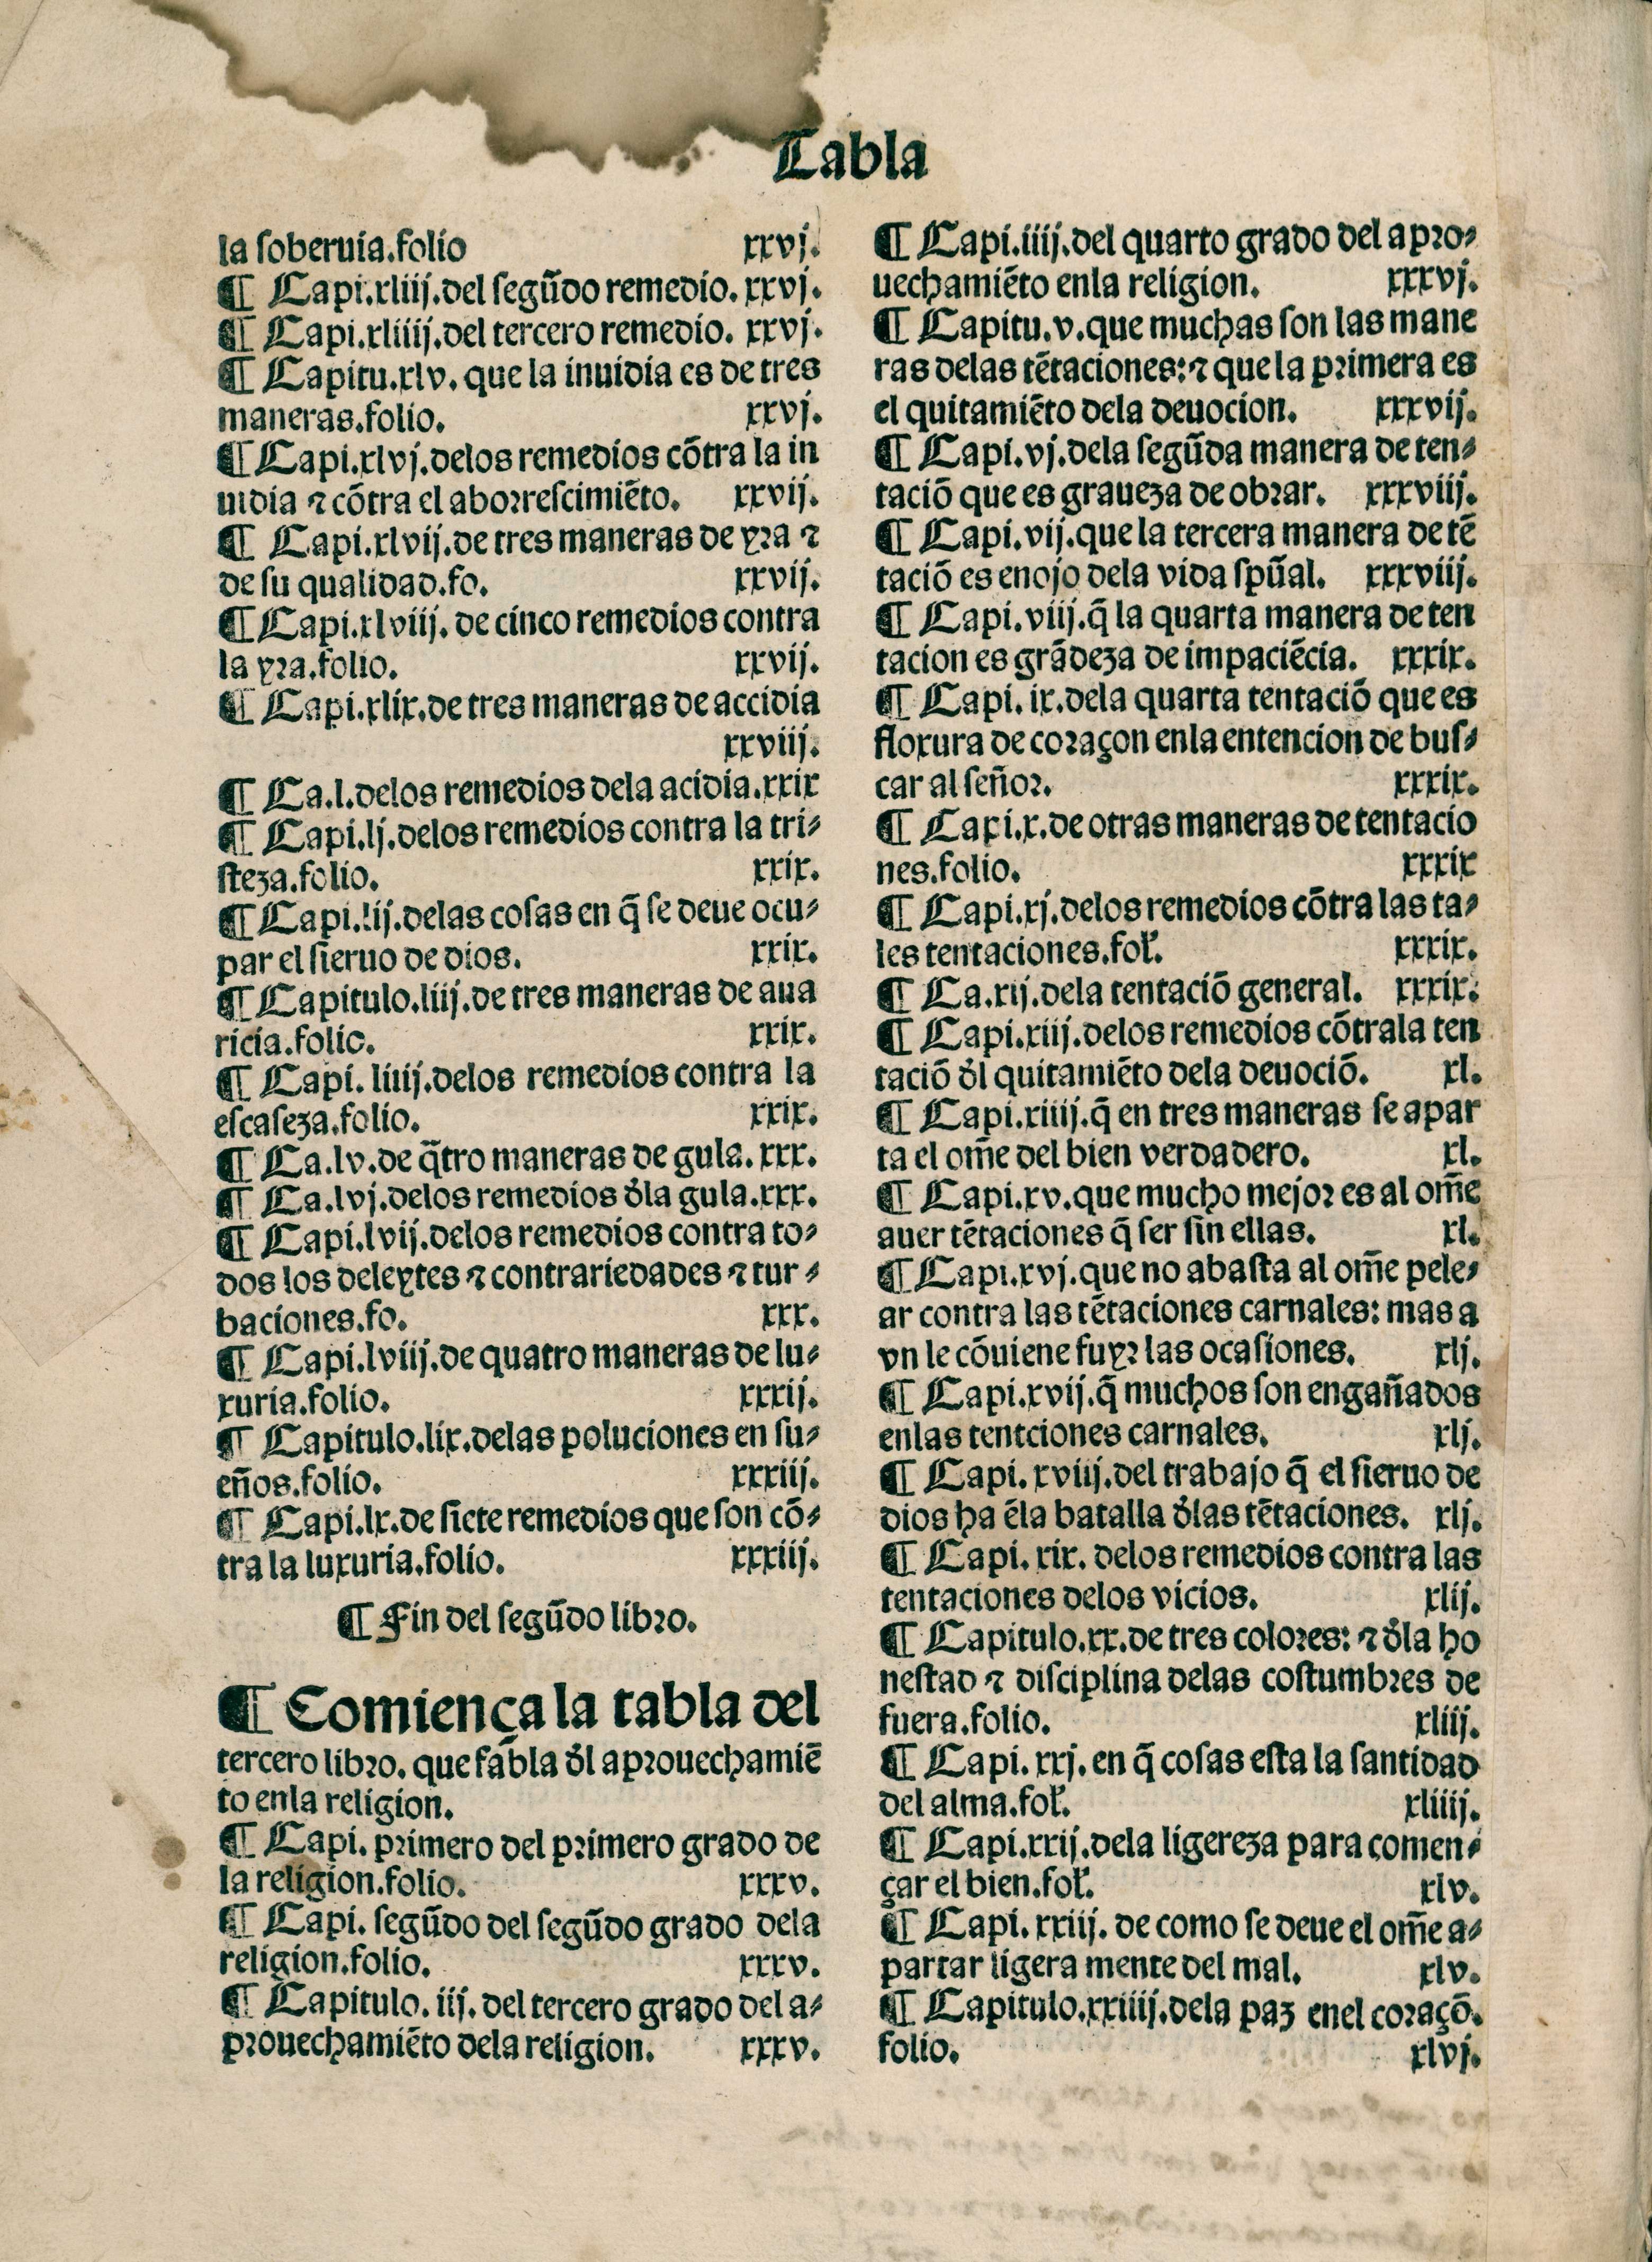 Tabla
la soberuia.folio xxvj.
¶ Capi.xliij.del segũdo remedio. xxvj.
¶ Capi.xliiij.del tercero remedio. xxvj.
¶ Capitu.xlv. que la inuidia es de tres
maneras.folio. xxvj.
¶ Capi.xlvj.delos remedios cõtra la in
uidia ⁊ cõtra el aborrescimiẽto. xxvij.
¶ Capi.xlvij.de tres maneras de yra ⁊
de su qualidad.fo. xxvij.
¶ Capi.xlviij. de cinco remedios contra
la yra.folio. xxvij.
¶ Capi.xlix.de tres maneras de accidia
xxviij.
¶ Ca.l.delos remedios dela acidia.xxix
¶ Capi.lj.delos remedios contra la tri-
steza.folio. xxix.
¶ Capi.lij.delas cosas en q̃ se deue ocu-
par el sieruo de dios. xxix.
¶ Capitulo.liij.de tres maneras de aua
ricia.folio. xxix.
¶ Capi. liiij.delos remedios contra la
escaseza.folio. xxix.
¶ Ca.lv.de q̃tro maneras de gula. xxx.
¶ Ca.lvj.delos remedios d̃la gula.xxx.
¶ Capi.lvij.delos remedios contra to-
dos los deleytes ⁊ contrariedades ⁊ tur-
baciones.fo. xxx.
¶ Capi.lviij.de quatro maneras de lu-
xuria.folio. xxxij.
¶ Capitulo.lix.delas poluciones en su-
eños.folio. xxxiij.
¶ Capi.lx.de siete remedios que son cõ-
tra la luxuria.folio. xxxiij.
¶ Fin del segũdo libro.
¶ Comiença la tabla del
tercero libro. que fabla d̃l aprouechamiẽ
to enla religion.
¶ Capi. primero del primero grado de
la religion.folio. xxxv.
¶ Capi. segũdo del segũdo grado dela
religion.folio. xxxv.
¶ Capitulo. iij. del tercero grado del a-
prouechamiẽto dela religion. xxxv.
¶ Capi.iiij.del quarto grado del apro-
uechamiẽto enla religion. xxxvj.
¶ Capitu.v.que muchas son las mane
ras delas tẽtaciones:⁊ que la primera es
el quitamiẽto dela deuocion. xxxvij.
¶ Capi.vj.dela segũda manera de ten-
taciõ que es graueza de obrar. xxxviij.
¶ Capi.vij.que la tercera manera de tẽ
taciõ es enojo dela vida spũal. xxxviij.
¶ Capi.viij.q̃ la quarta manera de ten
tacion es grãdeza de impaciẽcia. xxxix.
¶ Capi. ix.dela quarta tentaciõ que es
floxura de coraçon enla entencion de bus-
car al señor. xxxix.
¶ Capi.x.de otras maneras de tentacio
nes.folio. xxxix
¶ Capi.xj.delos remedios cõtra las ta-
les tentaciones.fol̃. xxxix.
¶ Ca.xij.dela tentaciõ general. xxxix.
¶ Capi.xiij.delos remedios cõtrala ten
taciõ d̃l quitamiẽto dela deuociõ. xl.
¶ Capi.xiiij.q̃ en tres maneras se apar
ta el om̃e del bien verdadero. xl.
¶ Capi.xv.que mucho mejor es al om̃e
auer tẽtaciones q̃ ser sin ellas. xl.
¶ Capi.xvj.que no abasta al om̃e pele-
ar contra las tẽtaciones carnales: mas a
vn le cõuiene fuyr las ocasiones. xlj.
¶ Capi.xvij.q̃ muchos son engañados
enlas tentciones carnales. xlj.
¶ Capi. xviij.del trabajo q̃ el sieruo de
dios ha ẽla batalla d̃las tẽtaciones. xlj.
¶ Capi. xix. delos remedios contra las
tentaciones delos vicios. xlij.
¶ Capitulo.xx.de tres colores: ⁊ d̃la ho
nestad ⁊ disciplina delas costumbres de
fuera.folio. xliij.
¶ Capi. xxj. en q̃ cosas esta la santidad
del alma.fol̃. xliiij.
¶ Capi.xxij.dela ligereza para comen-
çar el bien.fol̃. xlv.
¶ Capi. xxiij. de como se deue el om̃e a-
partar ligera mente del mal. xlv.
¶ Capitulo.xxiiij.dela paz enel coraçõ.
folio. xlvj.